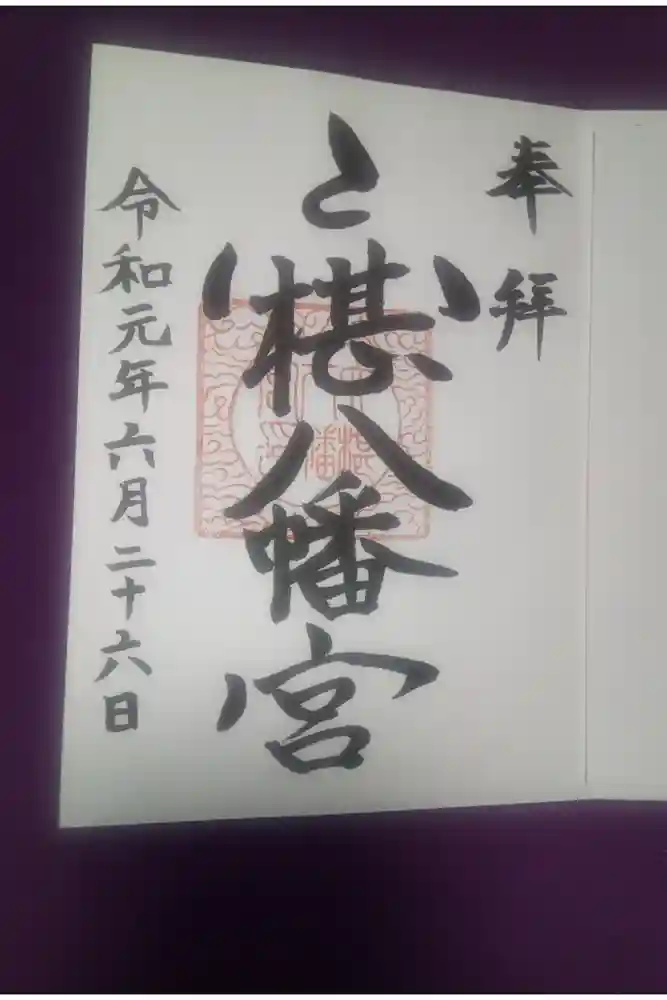 奉拝
椹八幡宮
令和元年六月二十六日